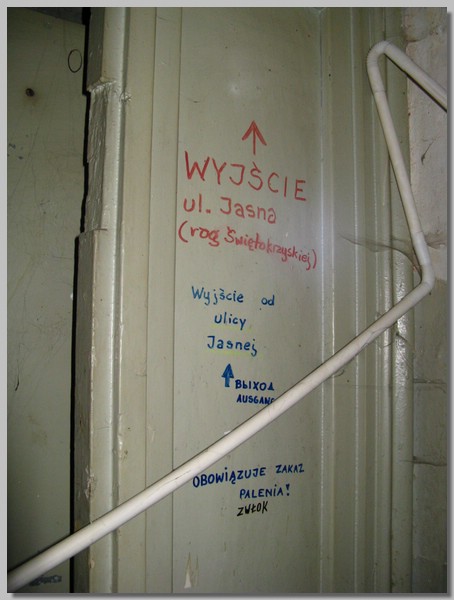 WYJŚCIE
ul. Jasna
(rog Świętokrzyskiej)
Wyjście od
ulicy
Jasnej
ВЫХОД
AUSGANG
OBOWIĄZUJE ZAKAZ
PALENIA!
ZWŁOK